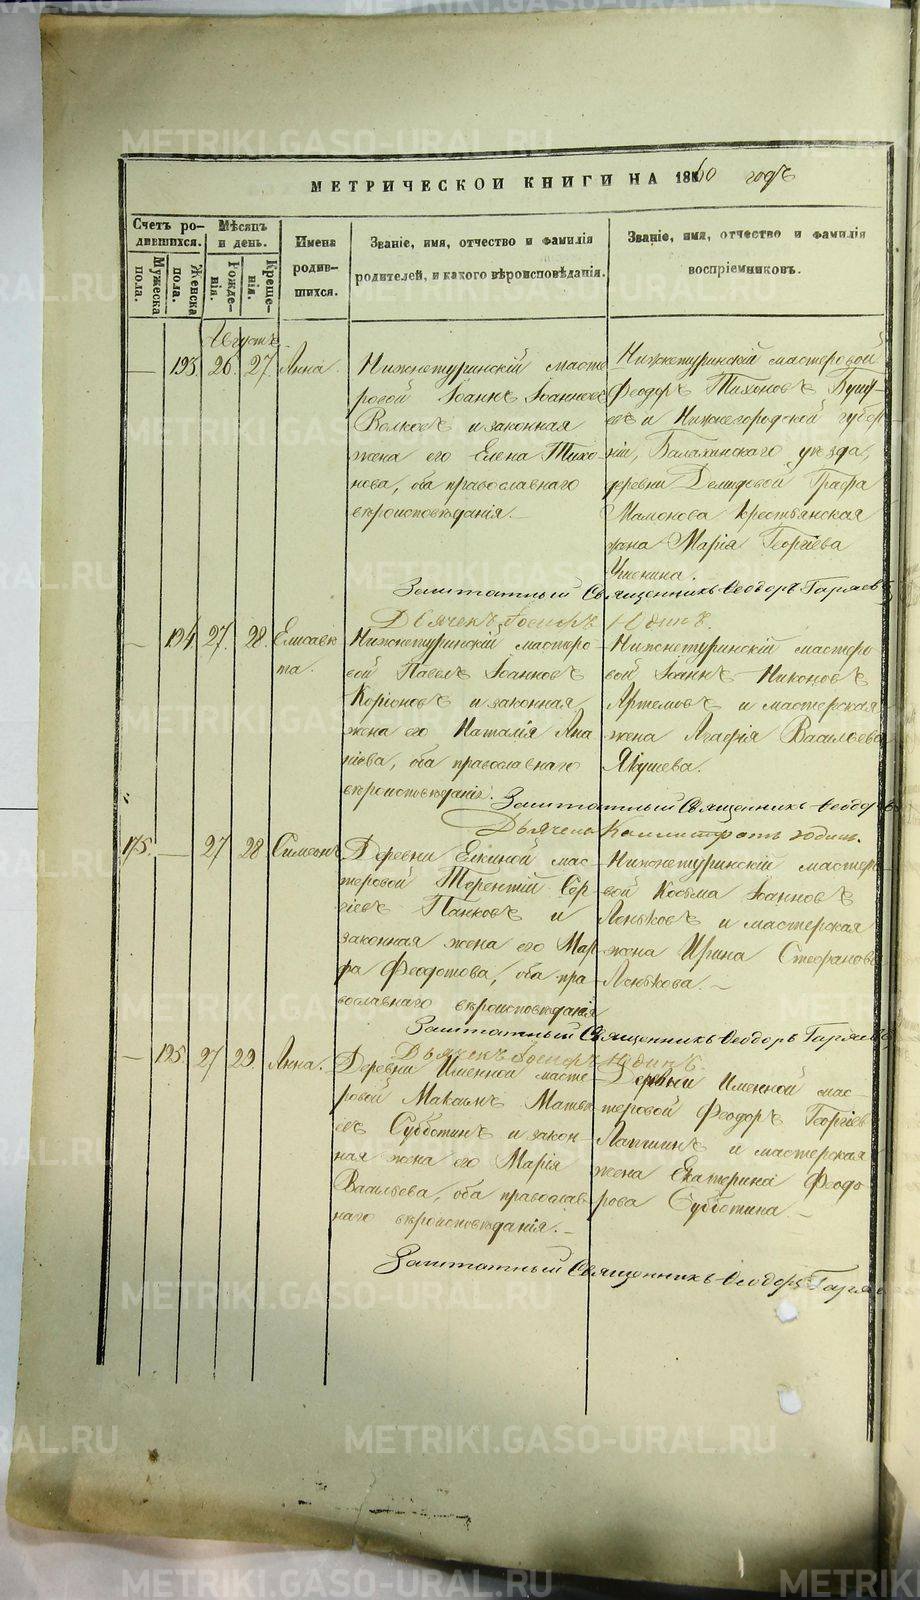 МЕТРИЧЕСКОЙ КНИГИ НА 1860 годъ
Счетъ родившихся.
Мужеска пола.
Женска пола.
Мѣсяцъ и день.
Рожденія.
Крещенія.
Имена родившихся.
Званіе, имя, отчество и фамилія
родителей, и какого вѣроисповѣданія.
Званіе, имя, отчество и фамилія
воспріемниковъ.
Августъ
— 193. 26. 27. Анна.
Нижнетуринскій масте
ровой Іоаннъ Іоанновъ
Волковъ и законная
жена его Елена Тихо
нова, оба православнаго
вѣроисповѣданія. —
Нижнетуринскій мастеровой
Феодоръ Тихоновъ
и Нижегородской губер
ніи, Балахнинскаго уѣзда,
деревни Демидовой Графа
Мамонова крестьянская
жена Марія Георгіева
Заштатный Священникъ Феодоръ Гаряевъ
Дьячекъ Юдинъ.
— 194. 27. 28. Елисаве
та.
Нижнетуринскій мастеро
вой Павелъ Іоанновъ
Коріоновъ и законная
жена его Наталія Ана
ніева, оба православнаго
вѣроисповѣданія.
Нижнетуринскій мастеро
вой Іоаннъ Никоновъ
Артемовъ и мастерская
жена Агафія Васильева
Якушева.
Заштатный Священникъ Феодоръ
Дьячекъ Каллистратъ Юдинъ.
175. — 27 28 Симеонъ
Деревни Елкиной мас
теровой Терентій Сер
гіевъ Панковъ и
законная жена его Мар
фа Феодотова, оба пра
вославнаго вѣроисповѣданія
Нижнетуринскій мастеро
вой Косьма Іоанновъ
Леньковъ и мастерская
жена Ирина Стефанова
Ленькова. —
Заштатный Священникъ Феодоръ Гаряевъ
Дьячекъ Юдинъ.
— 195. 27 29. Анна.
Деревни Именной масте
ровой Максимъ Матвѣ
евъ Субботинъ и закон
ная жена его Марія
Васильева, оба православ
наго вѣроисповѣданія. —
Деревни Именной мас
теровой Феодоръ Георгіев
Лапшинъ и мастерская
жена Екатерина Феодо
рова Субботина —
Заштатный Священникъ Феодоръ Гаряевъ
METRIKI.GASO-URAL.RU